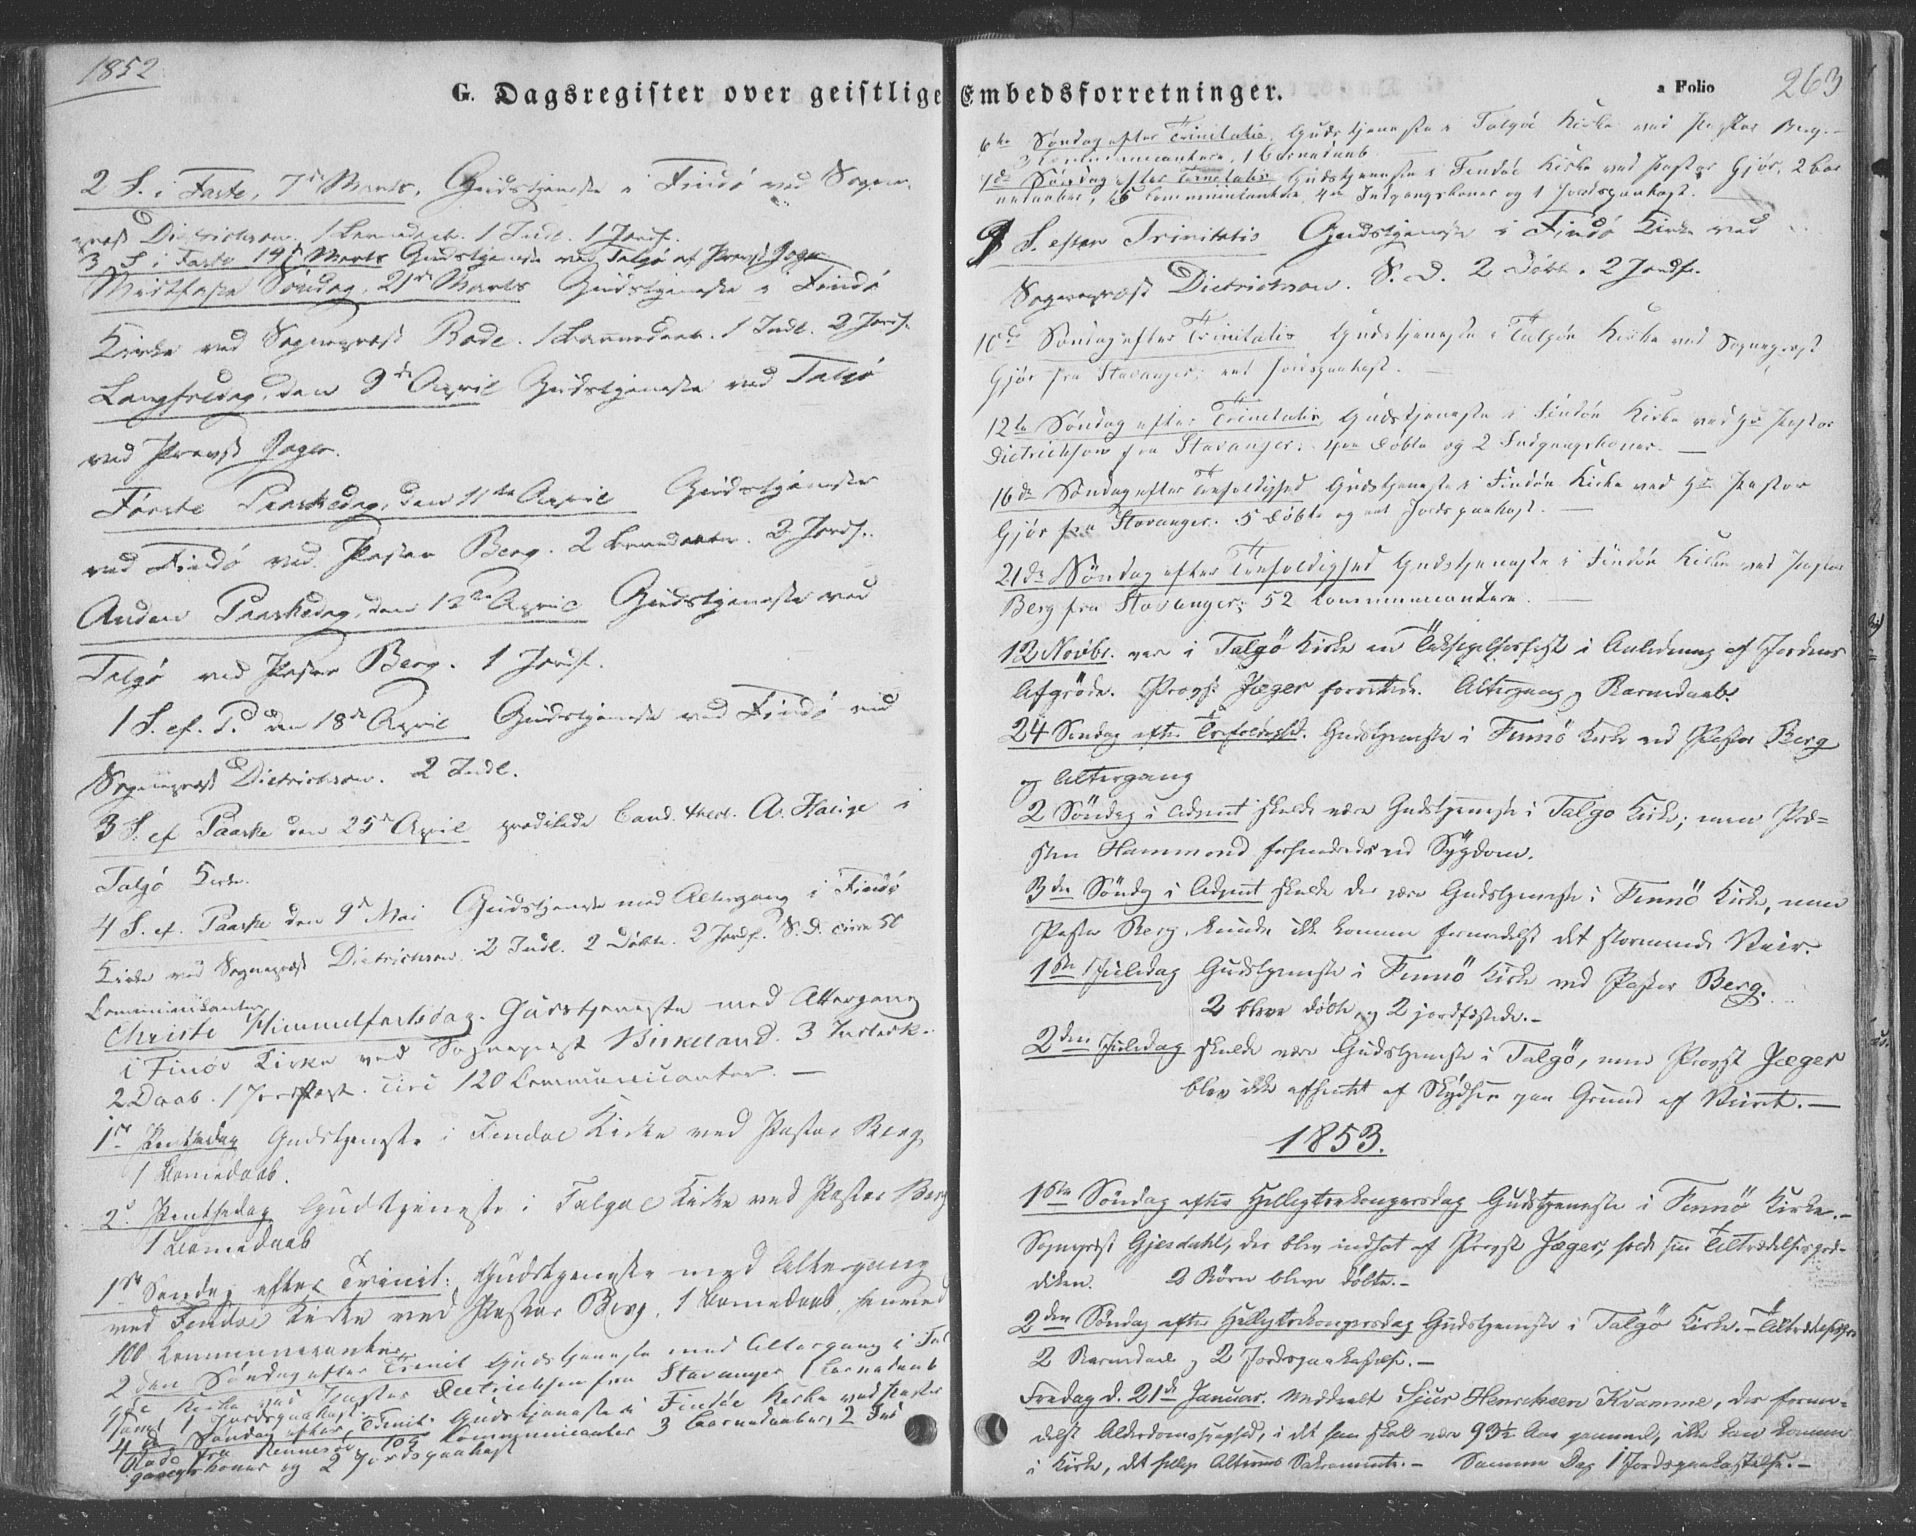 1852
G. Dagsregister over geistlige
2 S. i Faste, 7de Marts, Gudstjeneste i Findø ved Sogne-
præst Dietrichson. 1 Barnedaab. 1 Indl. 1 Jordf.
3 S i Faste 14de Marts Gudstjeneste ved Talgø af Provst Jæger
Midtfaste Søndag, 21de Marts Gudstjeneste i Findø
Kirke ved Sognepræst Rode. 1 Barnedaab. 1 Indl. 2 Jordf.
Langfredag, den 9de April Gudstjeneste ved Talgø
ved Provst Jæger.
Første Paaskedag, den 11te April Gudstjeneste
ved Findø ved Pastor Berg. 2 Barnedaab. 2 Jordf.
Anden Paaskedag, den 12te April Gudstjeneste ved
Talgø ved Pastor Berg. 1 Jordf.
1 S. ef. P. den 18de April Gudstjeneste ved Findø ved
Sognepræst Dietrichson. 2 Indl.
3 S. ef Paaske den 25de April prædikede Cand. theol. A. Hauge i
Talgø Kirke.
4 S. ef. Paaske den 9de Mai Gudstjeneste med Altergang i Findø
Kirke ved Sognepræst Dietrichson. 2 Indl. 2 Døbte. 2 Jordf. S. D. circa 50
Communikanter
Christi Himmelfartsdag. Gudstjeneste med Altergang
i Finøe Kirke ved Sognepræst Birkeland. 3 Introduk.
2 Daab. 1 Jordfæst. circ 120 Communicanter. —
1ste Pintsedag Gudstjeneste i Findøe Kirke ved Pastor Berg
1 Barnedaab.
2d. Pintsedag Gudstjeneste i Talgøe Kirke ved Pastor Berg
1 Barnedaab
1ste Søndag efter Trinit. Gudstjeneste med Altergang
ved Findøe Kirke ved Pastor Berg. 1 Barnedaab,
100 Communicanter
2den Søndag efter Trinit Gudstjeneste med Altergang i Tal
gøe Kirke ved Pastor Dietrichson fra Stavanger 1 Barnedaab
samt 1 Jordspaakast.
4de Søndag efter Trinit. Gudstjeneste i Findøe Kirke ved Pastor
Rode fra Rennesøe 103 Communicanter 3 Barnedaaber, 2 Ind
gangskoner og 2 Jordspaakast
Embedsforretninger.
a Folio 263
6te Søndag efter Trinitatis, Gudstjeneste i Talgøe Kirke ved Pastor Berg.—
3 Communicantere, 1 Barnedaab
7de Søndag efter Trinitatis Gudstjeneste i Findøe Kirke ved Pastor Gjør, 2 Bar
nedaaber, Communicantere, 4re Indgangskoner og 1 Jordspaakast.
9 S. efter Trinitatis Gudstjeneste i Findø Kirke ved
Sognepræst Dietrichson. S. D. 2 Døbte. 2 Jordf.
10de Søndag efter Trinitatis Gudstjeneste i Talgøe Kirke ved Sognepræst
Gjør fra Stavanger; eet Jordspaakast. —
12te Søndag efter Trinitatis, Gudstjeneste i Findøe Kirke ved Hr Pastor
Dietrichson fra Stavanger. 4re Døbte og 2 Indgangskoner. —
16de Søndag efter Trefoldighed Gudstjeneste i Findøe Kirke ved Hr. Pastor
Gjør fra Stavanger. 5 Døbte og eet Jordspaakast. —
21de Søndag efter Trefoldighed Gudstjeneste i Findøe Kirke ved Pastor
Berg fra Stavanger; 52 Communicantere. —
12 Novbr. var i Talgø Kirke en Taksigelsesfest i Anledning af Jordens
Afgrøde. Provst Jæger forrettede. Altergang og Barnedaab.
24 Søndag efter Trefoldighed. Gudstjeneste i Finnø Kirke ved Pastor Berg
og Altergang
2 Søndag i Advent skulde være Gudstjeneste i Talgø Kirke; men Præ=
sten Hammond forhindredes ved Sygdom.
3die Søndag i Advent skulde der være Gudstjeneste i Finnø Kirke, men
Pastor Berg kunde ikke komme formedelst det stormende Veir.
1ste Juledag Gudstjeneste i Finnø Kirke ved Pastor Berg.
2 bleve døbte og 2 jordfæstede.—
2den Juledag skulde være Gudstjeneste i Talgø, men Provst Jæger
blev ikke afhentet af Skydsen paa Grund af Veiret. —
1853.
1ste Søndag efter Helligtrekongersdag Gudstjeneste i Finnø Kirke.—
Sognepræst Gjesdahl, der blev indsat af Provst Jæger, holdt sin Tiltrædelsespræ-
diken. 2 Børn bleve døbte.—
2den Søndag efter Helligtrekongersdag Gudstjeneste i Talgø Kirke.—
2 Barnedaab og 2 Jordspaakastelse.—
Fredag d. 21de Januar. meddeelt Sjur Henriksen Kvamme, der forme-
delst Alderdomssvaghed, i det han skal være 93½ Aar gammel, ikke kan komme
i Kirke, det hellige Alterens Sakramente.— Samme Dag 1 Jordspaakastelse.—